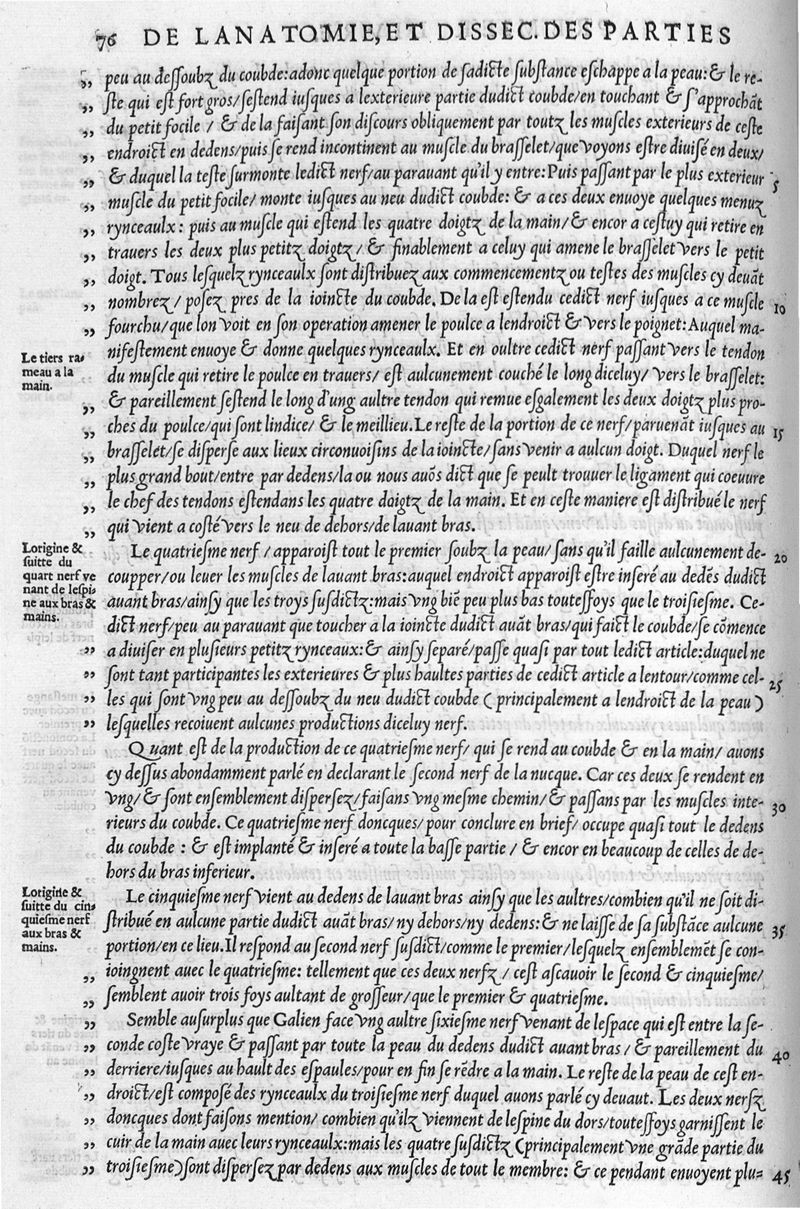 76 DE LANATOMIE, ET DISSEC. DES PARTIES
„ peu au dessoubz du coubde: adonc quelque portion de sadicte substance eschappe a la peau: & le re-
„ ste qui est fort gros/ sestend iusques a lexterieure partie dudict coubde/ en touchant & s'approchāt
„ du petit focile / & de la faisant son discours obliquement par toutz les muscles exterieurs de ceste
„ endroict en dedens/ puis se rend incontinent au muscle du brasselet/ que voyons estre diuisé en deux/
„ & duquel la teste surmonte ledict nerf/ au parauant qu'il y entre: Puis passant par le plus exterieur 5
„ muscle du petit focile/ monte iusques au neu dudict coubde: & a ces deux enuoye quelques menuz
„ rynceaulx: puis au muscle qui estend les quatre doigtz de la main/ & encor a cestuy qui retire en
„ trauers les deux plus petitz doigtz/ & finablement a celuy qui amene le brasselet vers le petit
„ doigt. Tous lesquelz rynceaulx sont distribuez aux commencementz ou testes des muscles cy deuāt
„ nombrez/ posez pres de la ioincte du coubde. De la est estendu cedict nerf iusques a ce muscle 10
„ fourchu/ que lon voit en son operation amener le poulce a lendroict & vers le poignet: Auquel ma-
Le tiers ra-
meau a la
main.
nifestement enuoye & donne quelques rynceaulx. Et en oultre cedict nerf passant vers le tendon
du muscle qui retire le poulce en trauers/ est aulcunement couché le long diceluy/ vers le brasselet:
„ & pareillement sestend le long d'ung aultre tendon qui remue esgalement les deux doigtz plus pro-
„ ches du poulce/ qui sont lindice/ & le meillieu. Le reste de la portion de ce nerf/ paruenāt iusques au 15
„ brasselet/ se disperse aux lieux circonuoisins de la ioincte/ sans venir a aulcun doigt. Duquel nerf le
„ plus grand bout/ entre par dedens/ la ou nous auōs dict que se peult trouuer le ligament qui coeuure
„ le chef des tendons estendans les quatre doigtz de la main. Et en ceste maniere est distribué le nerf
„ qui vient a costé vers le neu de dehors/ de lauant bras.
Lorigine &
suitte du
quart nerf ve
nant de lespi-
ne aux bras &
mains.
Le quatriesme nerf / apparoist tout le premier soubz la peau/ sans qu'il faille aulcunement de- 20
coupper/ ou leuer les muscles de lauant bras: auquel endroict apparoist estre inseré au dedēs dudict
auant bras/ ainsy que les troys susdictz: mais vng biē peu plus bas toutesfoys que le troisiesme. Ce-
dict nerf/ peu au parauant que toucher a la ioincte dudict auāt bras/ qui faict le coubde/ se cōmence
„ a diuiser en plusieurs petitz rynceaux: & ainsy separé/ passe quasi par tout ledict article: duquel ne
„ sont tant participantes les exterieures & plus haultes parties de cedict article a lentour/ comme cel- 25
„ les qui sont vng peu au dessoubz du neu dudict coubde ( principalement a lendroict de la peau )
„ lesquelles recoiuent aulcunes productions diceluy nerf.
Quant est de la production de ce quatriesme nerf/ qui se rend au coubde & en la main/ auons
cy dessus abondamment parlé en declarant le second nerf de la nucque. Car ces deux se rendent en
vng/ & sont ensemblement dispersez/ faisans vng mesme chemin/ & passans par les muscles inte- 30
rieurs du coubde. Ce quatriesme nerf doncques/ pour conclure en brief/ occupe quasi tout le dedens
du coubde : & est implanté & inseré a toute la basse partie / & encor en beaucoup de celles de de-
hors du bras inferieur.
Lorigine &
suitte du cin-
quiesme nerf
aux bras &
mains.
Le cinquiesme nerf vient au dedens de lauant bras ainsy que les aultres/ combien qu'il ne soit di-
stribué en aulcune partie dudict auāt bras/ ny dehors/ ny dedens: & ne laisse de sa substāce aulcune 35
portion/ en ce lieu. Il respond au second nerf susdict/ comme le premier/ lesquelz ensemblemēt se con-
„ ioingnent auec le quatriesme: tellement que ces deux nerfz / cest ascauoir le second & cinquiesme/
„ semblent auoir trois foys aultant de grosseur/ que le premier & quatriesme.
„ Semble ausurplus que Galien face vng aultre sixiesme nerf venant de lespace qui est entre la se-
„ conde coste vraye & passant par toute la peau du dedens dudict auant bras / & pareillement du 40
„ derriere/ iusques au hault des espaules/ pour en fin se rēdre a la main. Le reste de la peau de cest en-
„ droict/ est composé des rynceaulx du troisiesme nerf duquel auons parlé cy deuaut. Les deux nerfz
„ doncques dont faisons mention/ combien qu'ilz viennent de lespine du dors/ toutesfoys garnissent le
„ cuir de la main auec leurs rynceaulx: mais les quatre susdictz ( principalement vne grāde partie du
„ troisiesme) sont dispersez par dedens aux muscles de tout le membre: & ce pendant enuoyent plu= 45